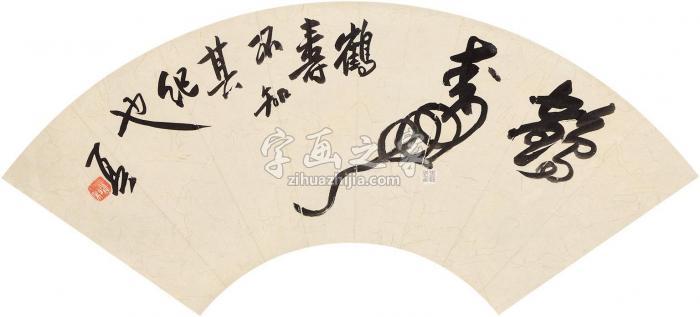 鶴
寿
鶴
壽
不知
其
紀
也
字画之家
zihuazhijia.com